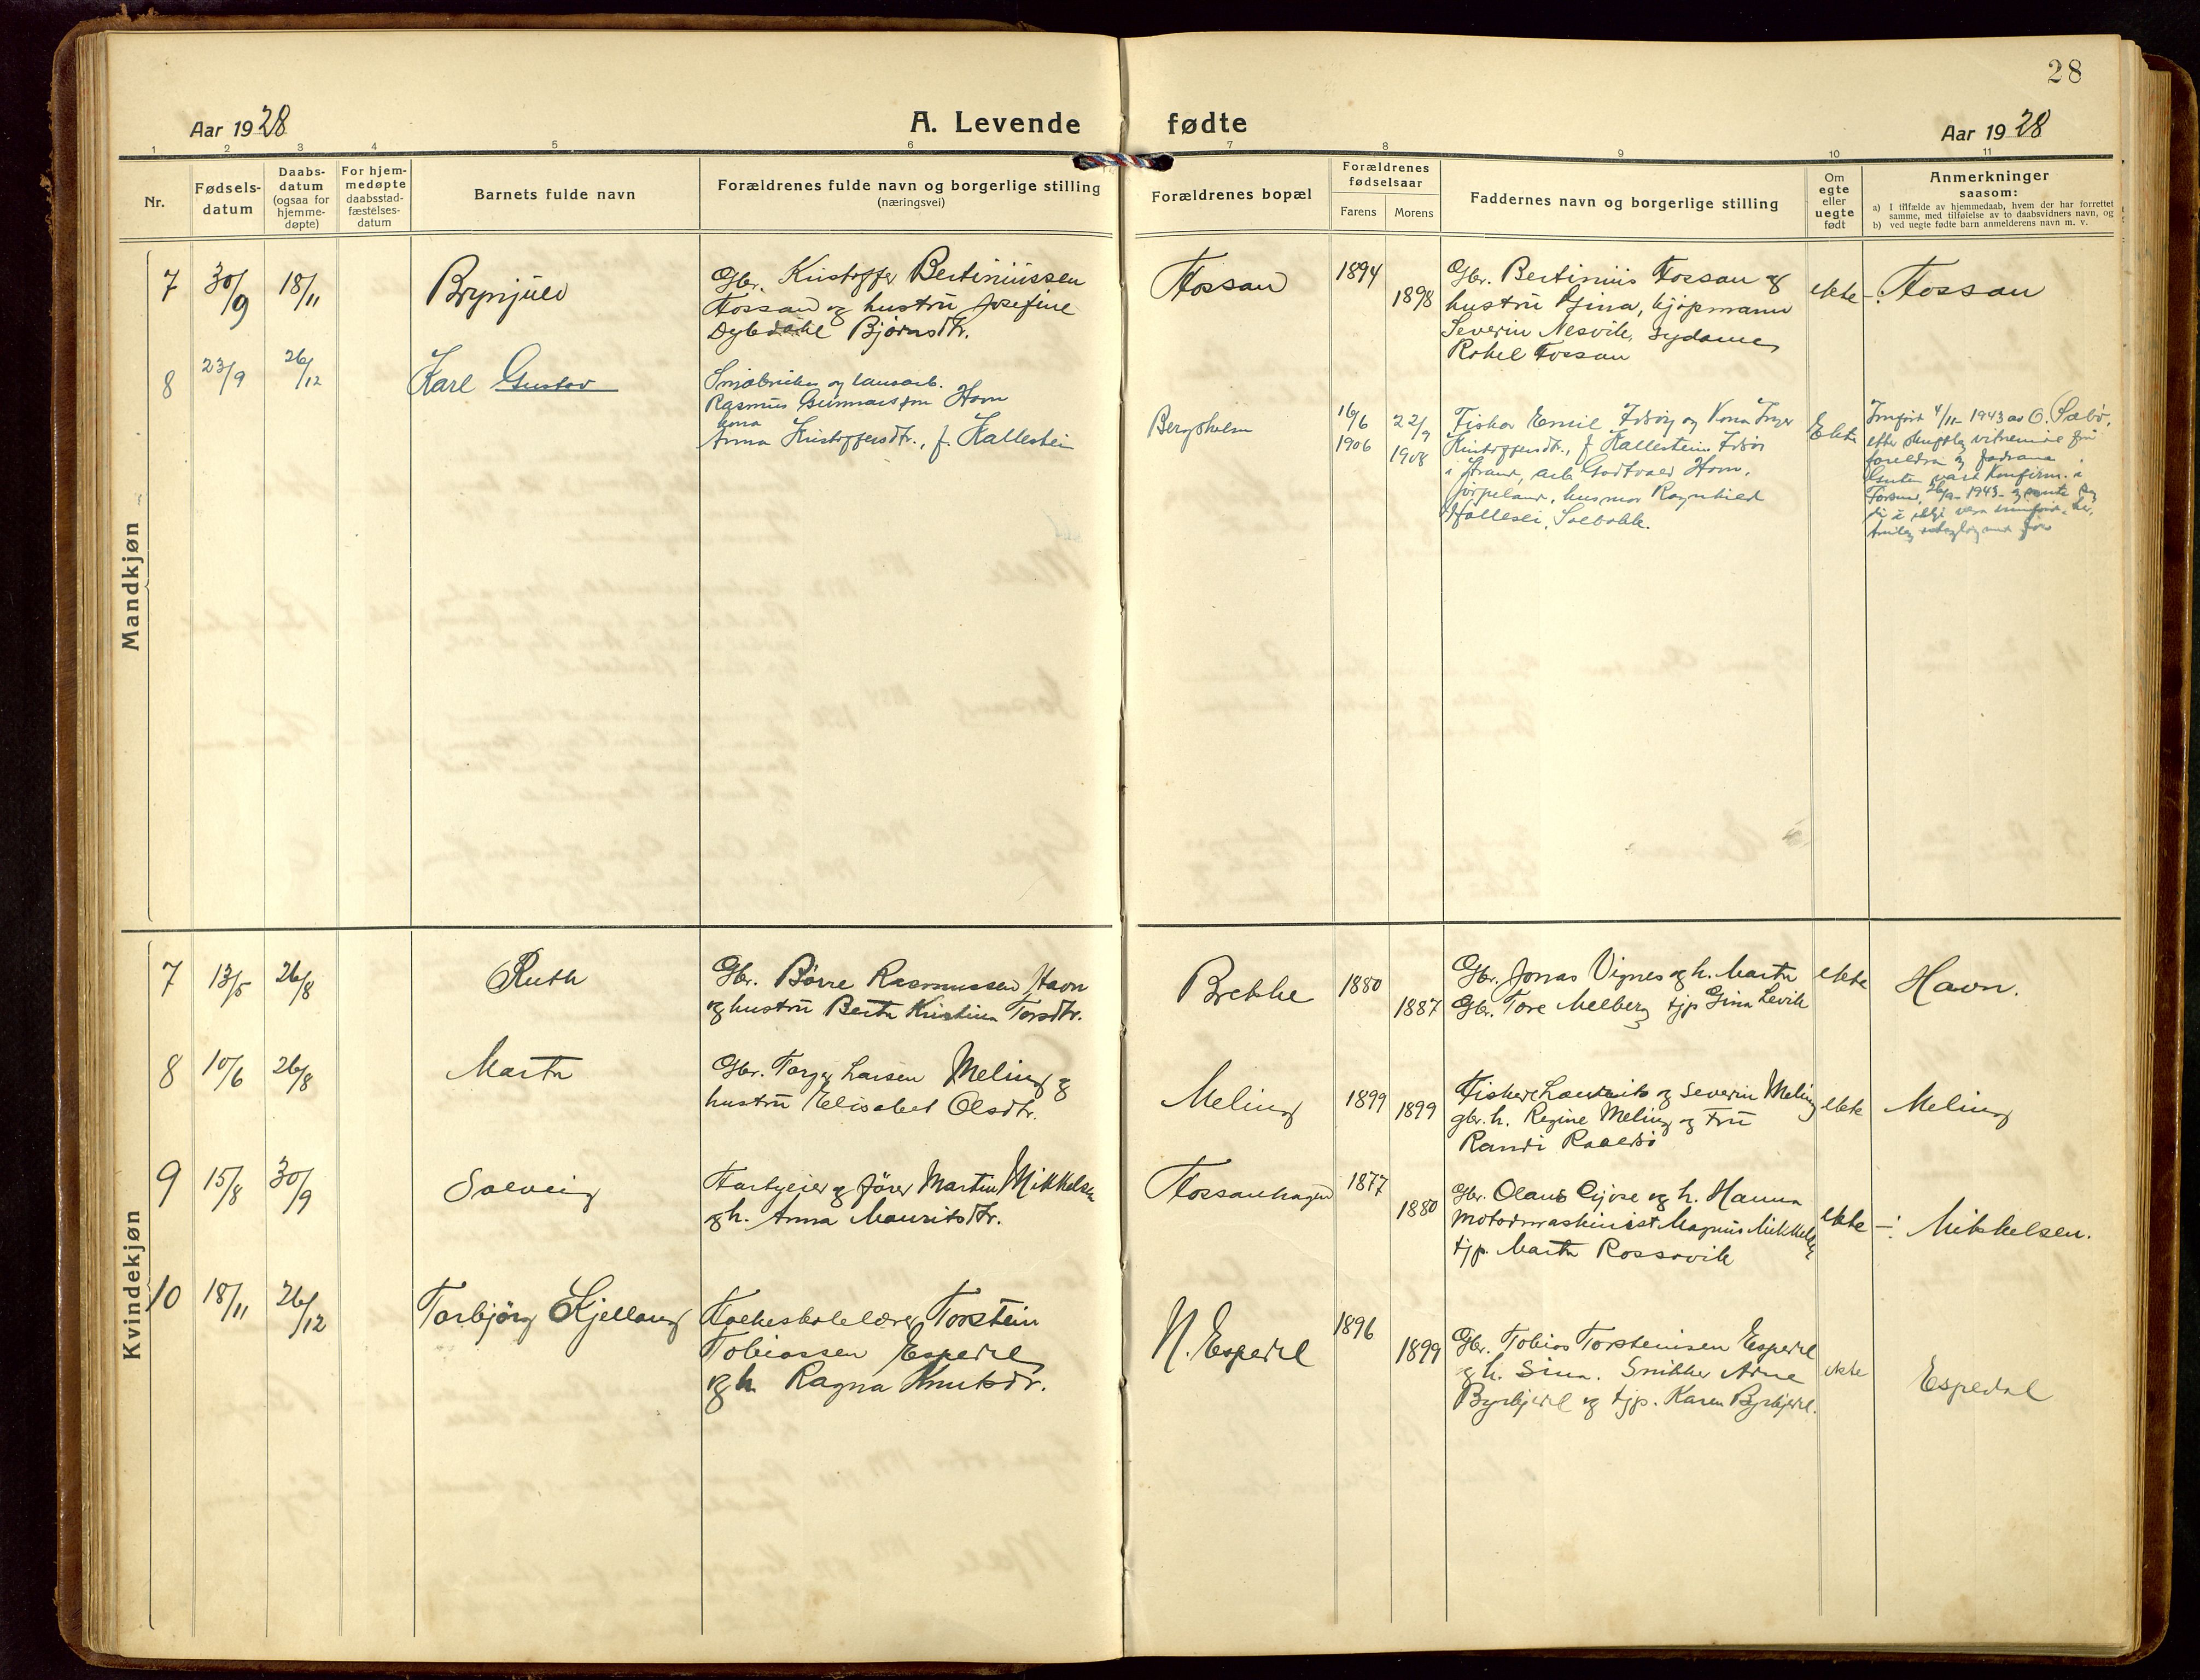 28
Aar 1928
A. Levende fødte
Aar 1928
1 2 3 4 5 6 7 8 9 10 11
Nr.
Fødsels-
datum
Daabs-
datum
(ogsaa for
hjemme-
døpte)
For hjem-
medøpte
daabsstad-
fæstelses-
datum
Barnets fulde navn
Forældrenes fulde navn og borgerlige stilling
(næringsvei)
Forældrenes bopæl
Forældrenes
fødselsaar
Farens Morens
Faddernes navn og borgerlige stilling
Om
egte
eller
uegte
født
Anmerkninger
saasom:
a) I tilfælde av hjemmedaab, hvem der har forrettet
samme, med tilføielse av to daabsvidners navn, og
b) ved uegte fødte barn anmelderens navn m. v.
Mandkjøn
7 30/9 18/11 Brynjulv
Gbr. Kristoffer Bertiniussen
Fossan og hustru Josefine
Dybedahl Bjørnsdtr.
Fossan 1894 1898
Gbr. Bertinius Fossan og
hustru Gina, kjøpmann
Severin Nesvik, sydame
Rakel Fossan
ekte -: Fossan
8 23/9 26/12 Karl Gustav
Småbrukar og lausarb.
Rasmus Gunnarsson Havn
kona
Anna Kristoffersdtr., f. Kallestein
Bergsholm 16/6 1906 22/9 1908
Fiskar Emil Idsøy og kona Inger
Kristoffersdtr., f Kallestein, Idsø
i Strand, arb. Gudtvald Havn,
Jørpeland, husmor Ragnhild
Hallesli, Solbakk.
Ekte
Innført 4/11 1943 av O. Sæbø,
etter skriftleg vitnemål frå
foreldra og fadrane.
Guten vart konfirm. i
Forsand 26/9 - 1943 -
Kvindekjøn
7 13/5 26/8 Ruth
Gbr. Børre Rasmussen Havn
og hustru Berta Kristina Torsdtr.
Brekke 1880 1887
Gbr. Jonas Vignes og h. Marta
Gbr. Tore Melberg tjp Gina Levik
ekte Havn.
8 10/6 26/8 Marta
Gbr. Torger Larsen Meling og
hustru Elisabet Olsdtr.
Meling 1899 1899
Fiskere Lauurits og Severin Meling
gbr. h. Regine Meling og Fru
Randi
ekte Meling
9 15/8 30/9 Solveig
Fartøieier og fører Martin Mikkelsen
og h. Anna Mauritsdtr.
Fossanhagen 1877 1880
Gbr. Olaus Gjøse og h. Hanna
Motormaskinist Magnus Mikkelsen
tjp. Marta Rossavik
ekte -: Mikkelsen.
10 18/11 26/12 Torbjørg Kjellaug
Folkeskolelærer Torstein
Tobiassen Espedal
og h. Ragna Knutsdtr.
N. Espedal 1896 1899
Gbr. Tobias Torsteinsen Espedal
og h. Sina. Snikker Arne
Byrkjedal og tjp. Karen Byrkjedal.
ekte Espedal